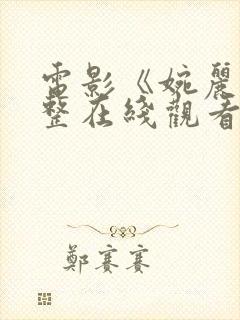 電影《婉麗
整在綫觀看
鄭賽賽